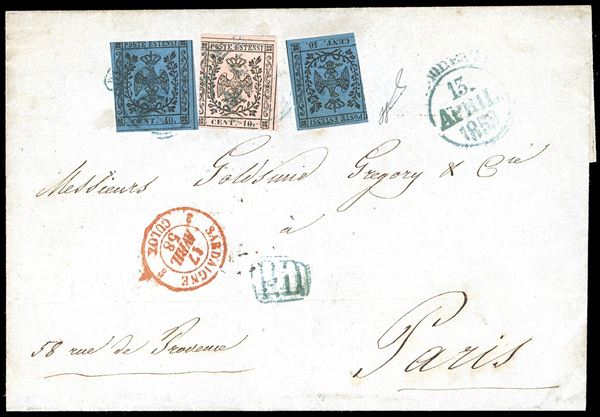 POSTE ESTENSI
CENT. 40.
POSTE ESTENSI
CENT. 10 c.
POSTE ESTENSI
CENT. 40.
13.
APRILE
185
Messieurs Goldsmid Gregory & Cie
à
SARDAIGNE
17
AVRIL
58
CULOZ
P.D.
58 rue de Provence
Paris